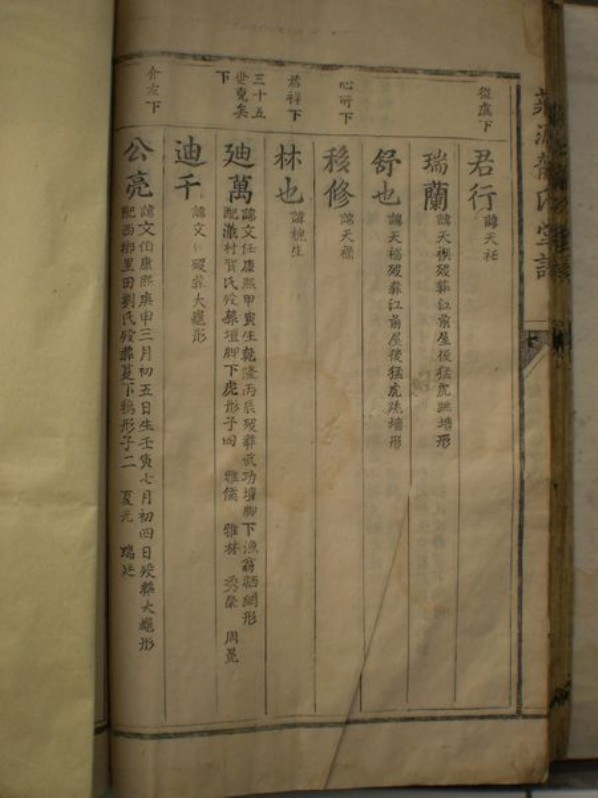 從虞下
君行 諱天祉
瑞蘭 諱天禩歿葬江前屋後猛虎跳墻形
舒也 諱天福歿葬江前屋後猛虎跳墻形
心所下
移修 諱天祿
若稱下
林也 諱槐生
三十五
世克矣
下
廸萬 諱文任康熙甲寅生乾隆丙辰歿葬武功壇脚下漁翁晒網形
配漱村賀氏歿葬壇脚下虎形子四 雅儒 雅林 秀榮 周冕
迪千 諱文 歿葬大 形
介友下
公亮 諱文伯康熙庚申三月初五日生壬寅七月初四日歿葬大 形
配西鄉里田劉氏歿葬 下鵝形子二 夏元 瑞廷
氏 譜